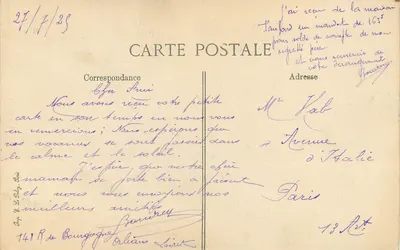 27/7/25
j'ai reçu de la maison
un mandat de 165f
pour solde de compte de mon
et vous remercie de
votre
CARTE POSTALE
Correspondance
Adresse
Cher Ami
Nous avons reçu votre petite
carte en son temps en nous vous
en remercions; Nous espérons que
vos vacances se sont passées dans
le calme et la soleil.
J'espère que notre chère
maman se porte bien à présent
et nous vous envoyons nos
meilleures amitiés
149 R de Bourgogne
Orléans Loiret
Mr Kab
Avenue
d'Italie
Paris
13 Art